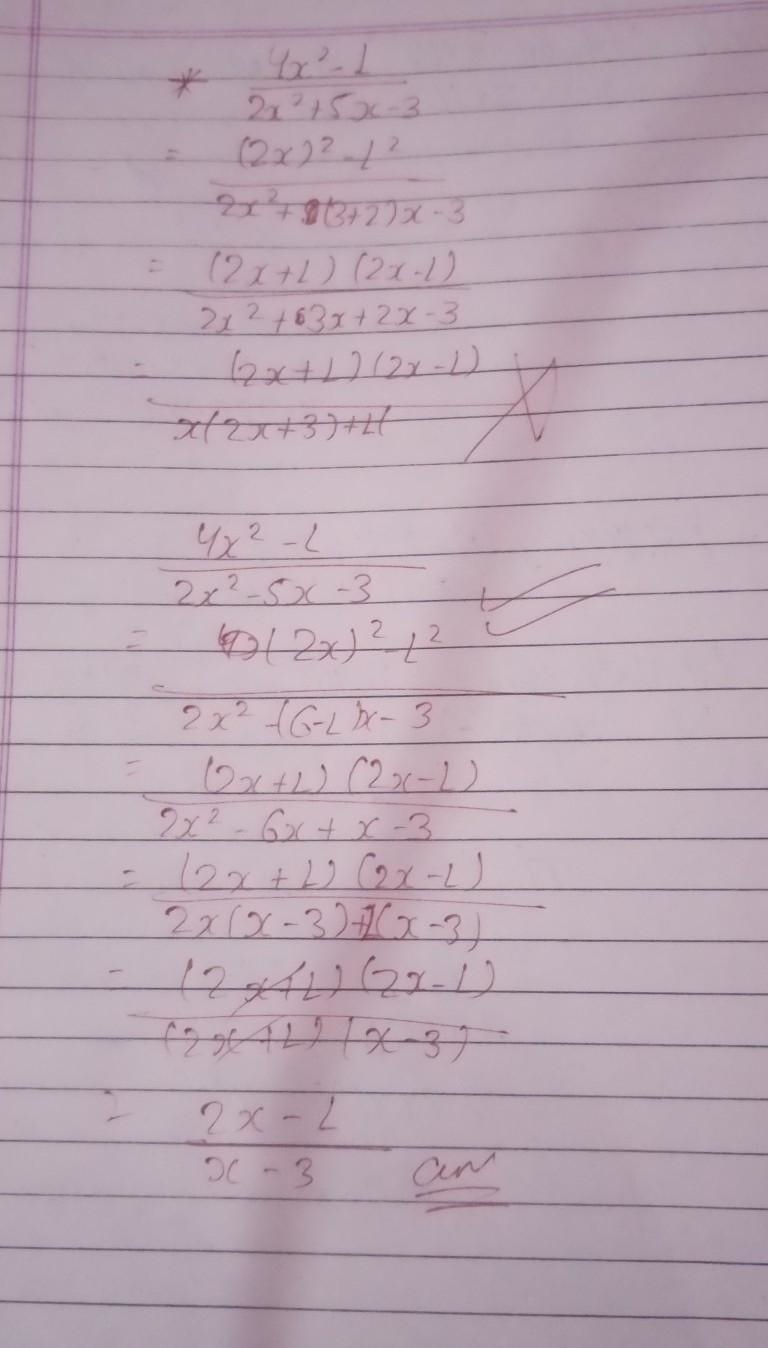 * 4x²-1
2x²+5x-3
= (2x)²-1²
2x²+(3+2)x-3
= (2x+1)(2x-1)
2x²+3x+2x-3
= (2x+1)(2x-1)
x(2x+3)+1(
4x²-1
2x²-5x-3
= (2x)²-1²
2x²-(6-1)x-3
= (2x+1)(2x-1)
2x²-6x+x-3
= (2x+1)(2x-1)
2x(x-3)+1(x-3)
= (2x+1)(2x-1)
(2x+1)(x-3)
= 2x-1
x-3 an